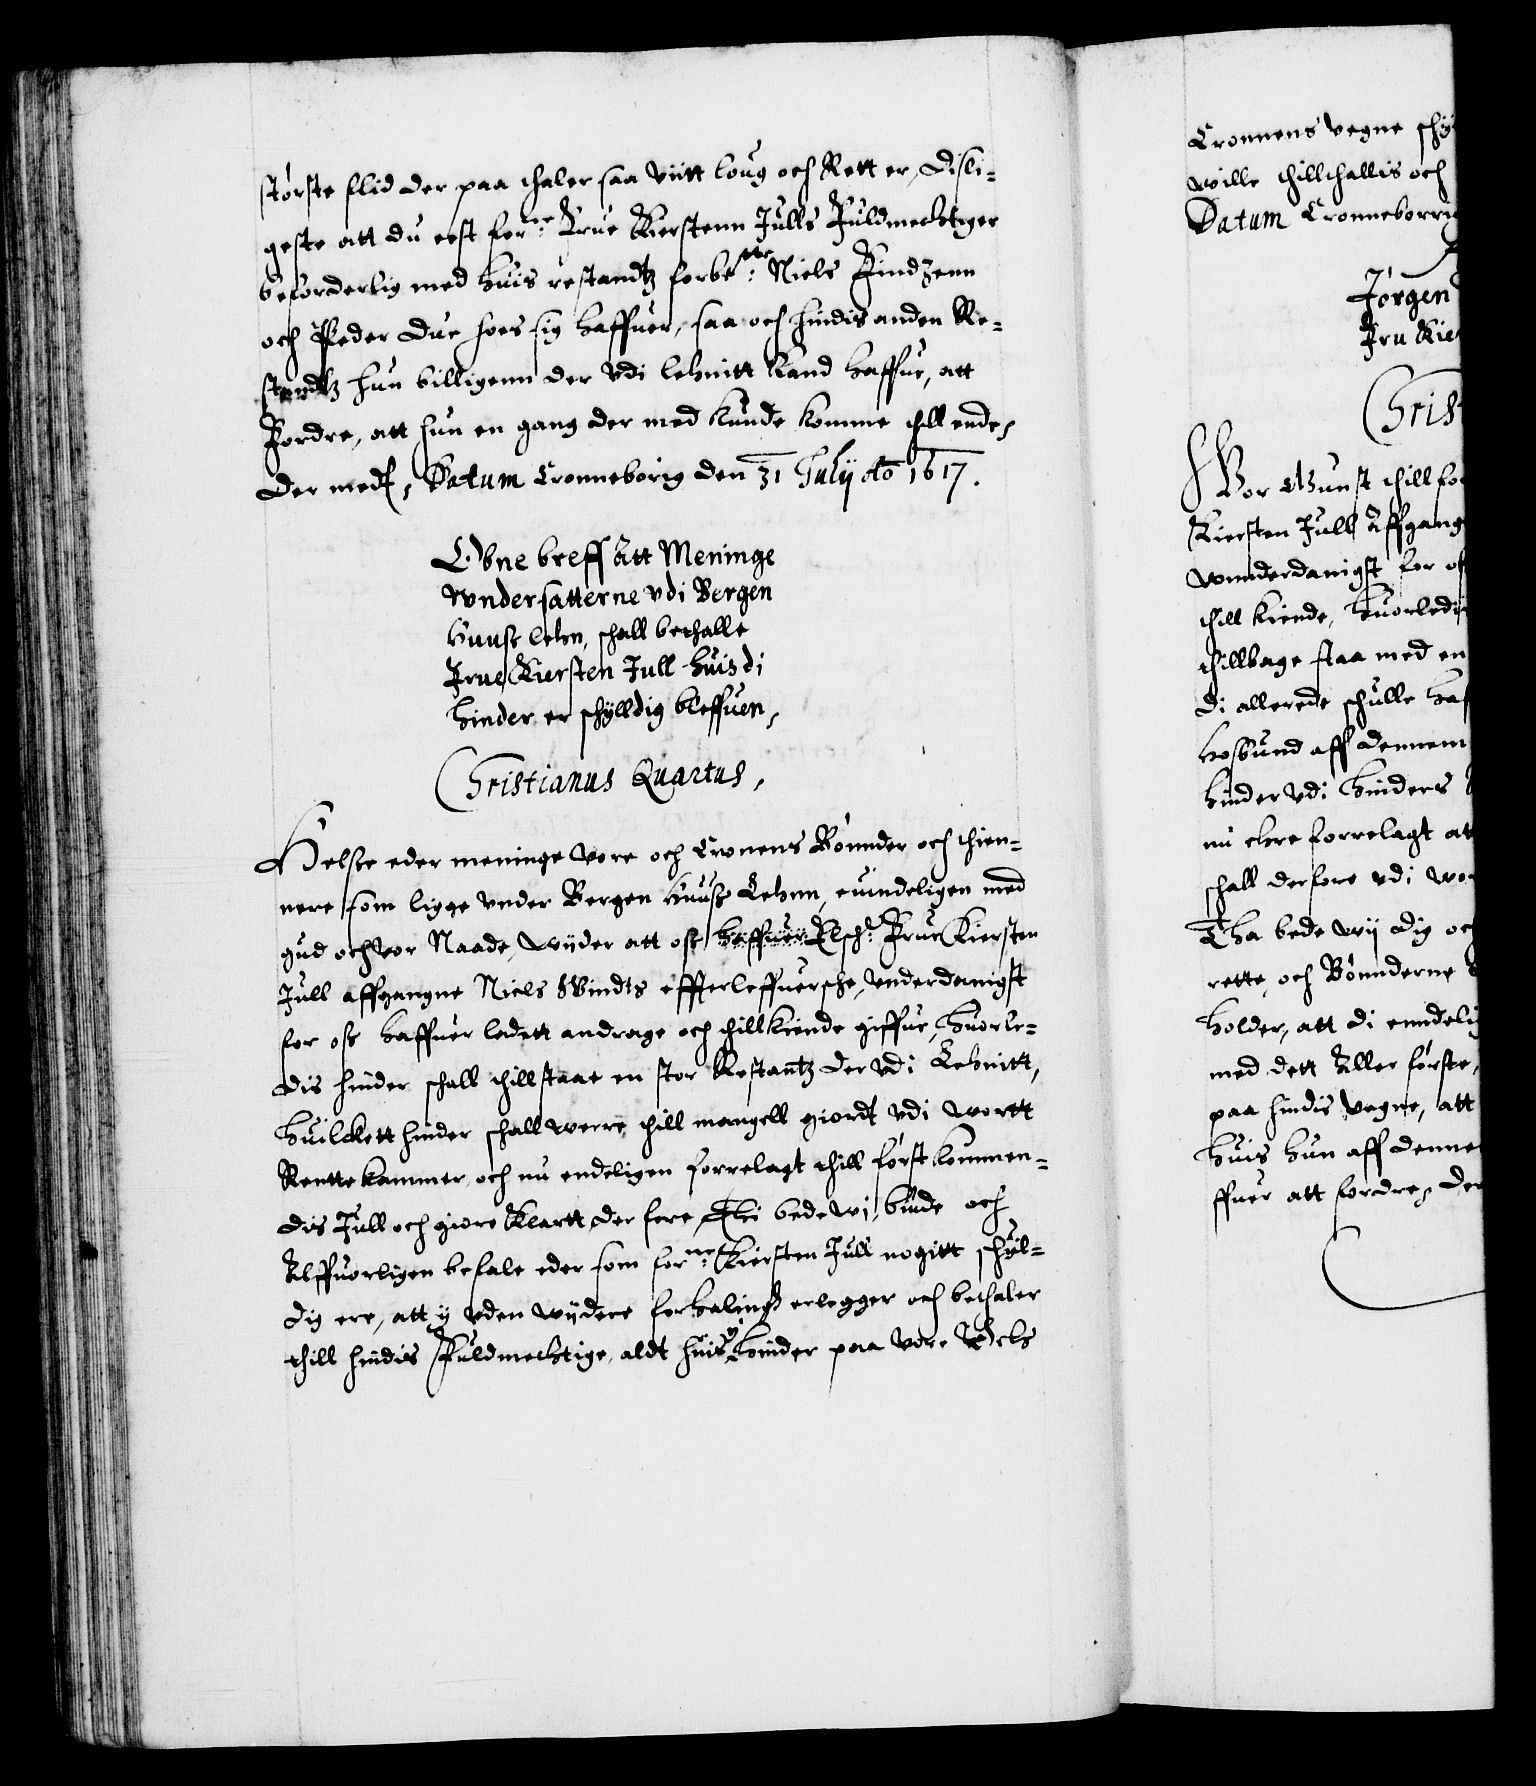 største flid der paa thaler saa viitt loug och Rett er, disli-
geste att du est forne: Frue Kierstenn Juls Fuldmechtiger
beforderlig med huis restandtz forbete: Niels Findzenn
och Peder Due hoes sig haffuer, saa och hindis anden Re-
standtz hun billigenn der vdi lehnitt kand haffue, att
Fordre, att hun en gang der med kunde komme thill ende,
Der med, Datum Cronneborig den 31 Julij Ao 1617.
Obne breff att Meninge
Wndersatterne vdi Bergen
Huuss lehn, schall bethalle
Frue Kiersten Jull huis di
hinder er schylldig bleffuen,
Christianus Quartus,
Helse eder meninge vore och Cronens Bønnder och thien-
nere som ligge vnder Bergen Huuss Lehnn, euindeligen med
gud och vor Naade, wijder att oss haffuer Elsche: Frue Kiersten
Jull affgangne Niels Windts effterleffuersche, vnderdanigst
for oss haffuer ladett andrage och thillkiende giffue, huorle-
dis hinder schall thillstaae en stor Restantz der vdi Lehnitt,
huilckett hinder schall werre thill mangell giordt vdi wortt
Rentte kammer, och nu endeligen forrelagt thill først kommen-
dis Jull och giøre Klartt der fore, Thi bede wi, biude och
Alffuorligen befale eder som forne: Kiersten Jull nogitt schyl-
dig ere, att y vden wijdere forhalings erlegger och bethaler
thill hindis Fuldmechtige, aldt huis y hinder paa vore och
Cronnens vegne schy
wille thillthallis och
Datum Cronneborrig
Jørgen
Fru Kie
Christ
Wor Gunst thill fo
Kiersten Jull Affgang
wnnderdanigst for os
thill kiende, huorledis
thillbage staa med en
di allerede schulle haf
hosbund aff dennem
hinder vdi hinders
nu ere forrelagt at
schall derfore vdi wor
Tha bede wij dig och
rette, och Bønnderne
holder, att di enndelig
med dett Aller første,
paa hindis vegne, att
huis hun aff denne
ffuer att fordre, Der